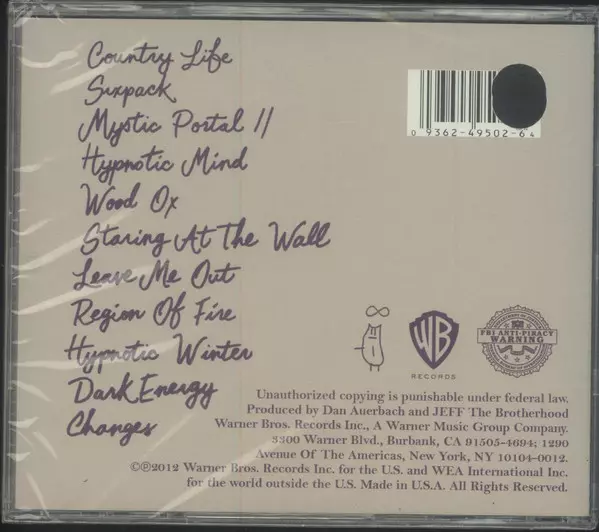 Country Life
Sixpack
Mystic Portal II
Hypnotic Mind
Wood Ox
Staring At The Wall
Leave Me Out
Region Of Fire
Hypnotic Winter
Dark Energy
Changes
0 9362-49502-6 4
WB
RECORDS
FBI ANTI-PIRACY
WARNING
Unauthorized copying is punishable under federal law.
Produced by Dan Auerbach and JEFF The Brotherhood
Warner Bros. Records Inc., A Warner Music Group Company.
3300 Warner Blvd., Burbank, CA 91505-4694; 1290
Avenue Of The Americas, New York, NY 10104-0012.
©℗2012 Warner Bros. Records Inc. for the U.S. and WEA International Inc.
for the world outside the U.S. Made in U.S.A. All Rights Reserved.